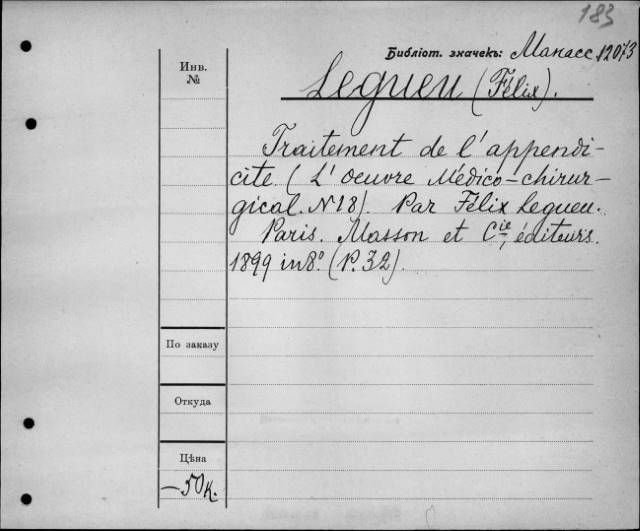 183
Библіот. значекъ: Манасс 12073
Инв.
№
Legueu (Félix).
Traitement de l'appendi-
cite (L'Oeuvre Médico-chirur-
gical. N 18). Par Félix Legueu.
Paris. Masson et Cie, éditeurs.
1899 in 8º (P. 32).
По заказу
Откуда
Цѣна
— 50 к.